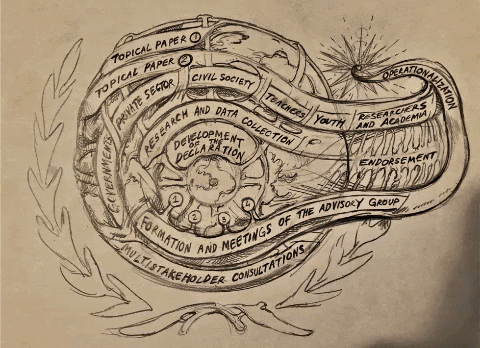 TOPICAL PAPER 1
TOPICAL PAPER 2
GOVERNMENTS
PRIVATE SECTOR
CIVIL SOCIETY
TEACHERS
YOUTH
RESEARCHERS
AND ACADEMIA
OPERATIONALIZATION
RESEARCH AND DATA COLLECTION
DEVELOPMENT
OF THE
DECLARATION
ENDORSEMENT
1
2
3
4
FORMATION AND MEETINGS OF THE ADVISORY GROUP
MULTISTAKEHOLDER CONSULTATIONS